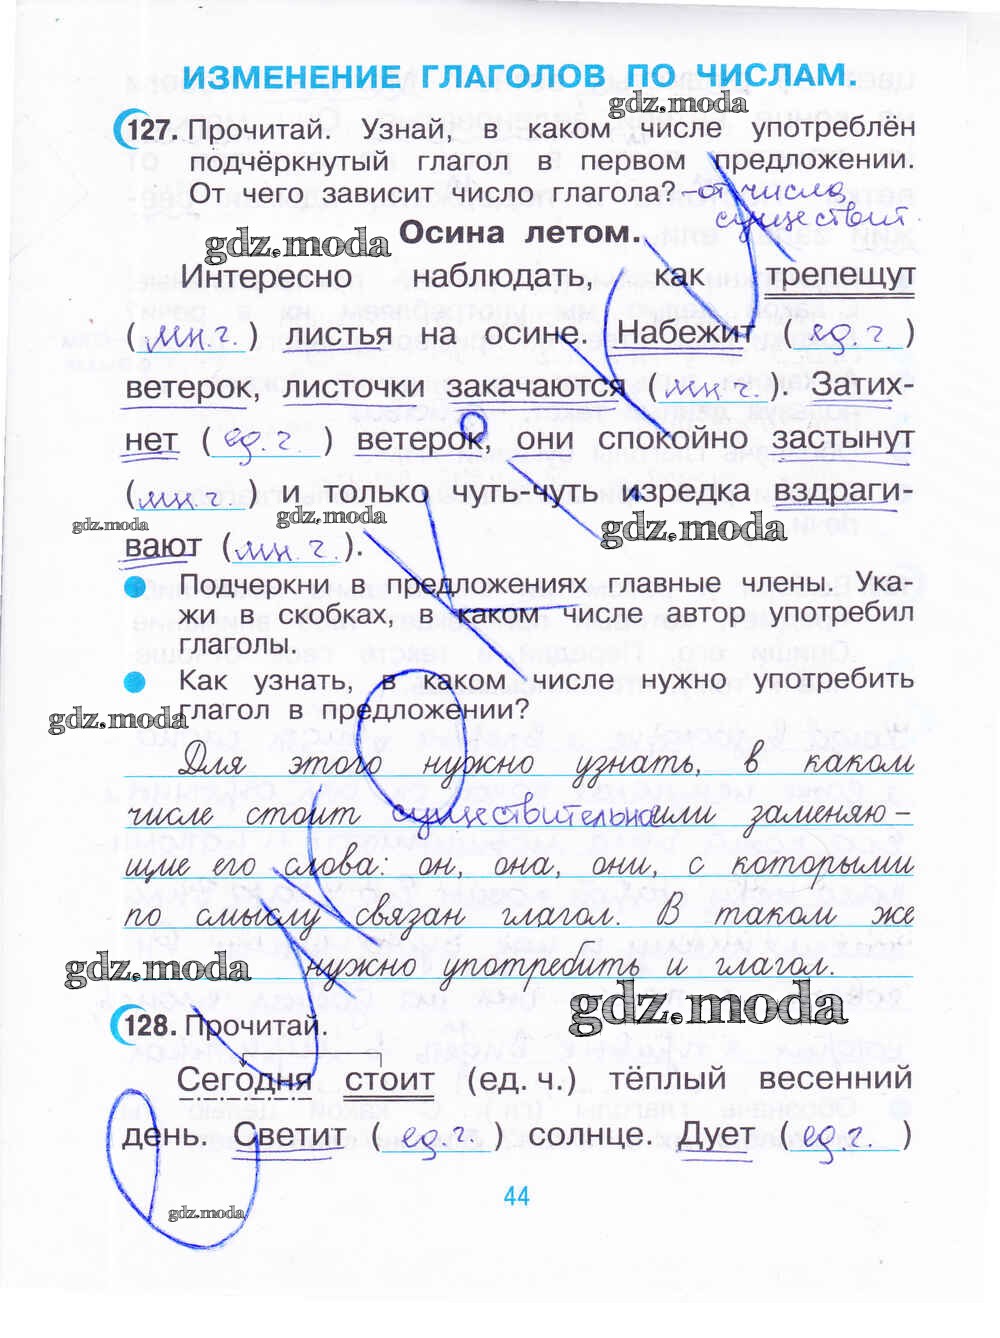 ИЗМЕНЕНИЕ ГЛАГОЛОВ ПО ЧИСЛАМ
gdz.moda
127. Прочитай. Узнай, в каком числе употреблён
подчёркнутый глагол в первом предложении.
От чего зависит число глагола? – от числа
существит.
gdz.moda
Осина летом.
Интересно наблюдать, как трепещут
(мн.ч.) листья на осине. Набежит (ед.ч)
ветерок, листочки закачаются (мн.ч.). Затих-
нет (ед.ч.) ветерок, они спокойно застынут
(мн.ч.) и только чуть-чуть изредка вздраги-
gdz.moda gdz.moda gdz.moda
вают (мн.ч.).
Подчеркни в предложениях главные члены. Ука-
жи в скобках, в каком числе автор употребил
глаголы.
Как узнать, в каком числе нужно употребить
глагол в предложении?
gdz.moda
Для этого нужно узнать, в каком
числе стоит существительное или заменяю-
щие его слова: он, она, они, с которыми
по смыслу связан глагол. В таком же
нужно употребить и глагол.
gdz.moda
gdz.moda
128. Прочитай.
Сегодня стоит (ед. ч.) тёплый весенний
день. Светит (ед.ч.) солнце. Дует (ед.ч.)
44
gdz.moda